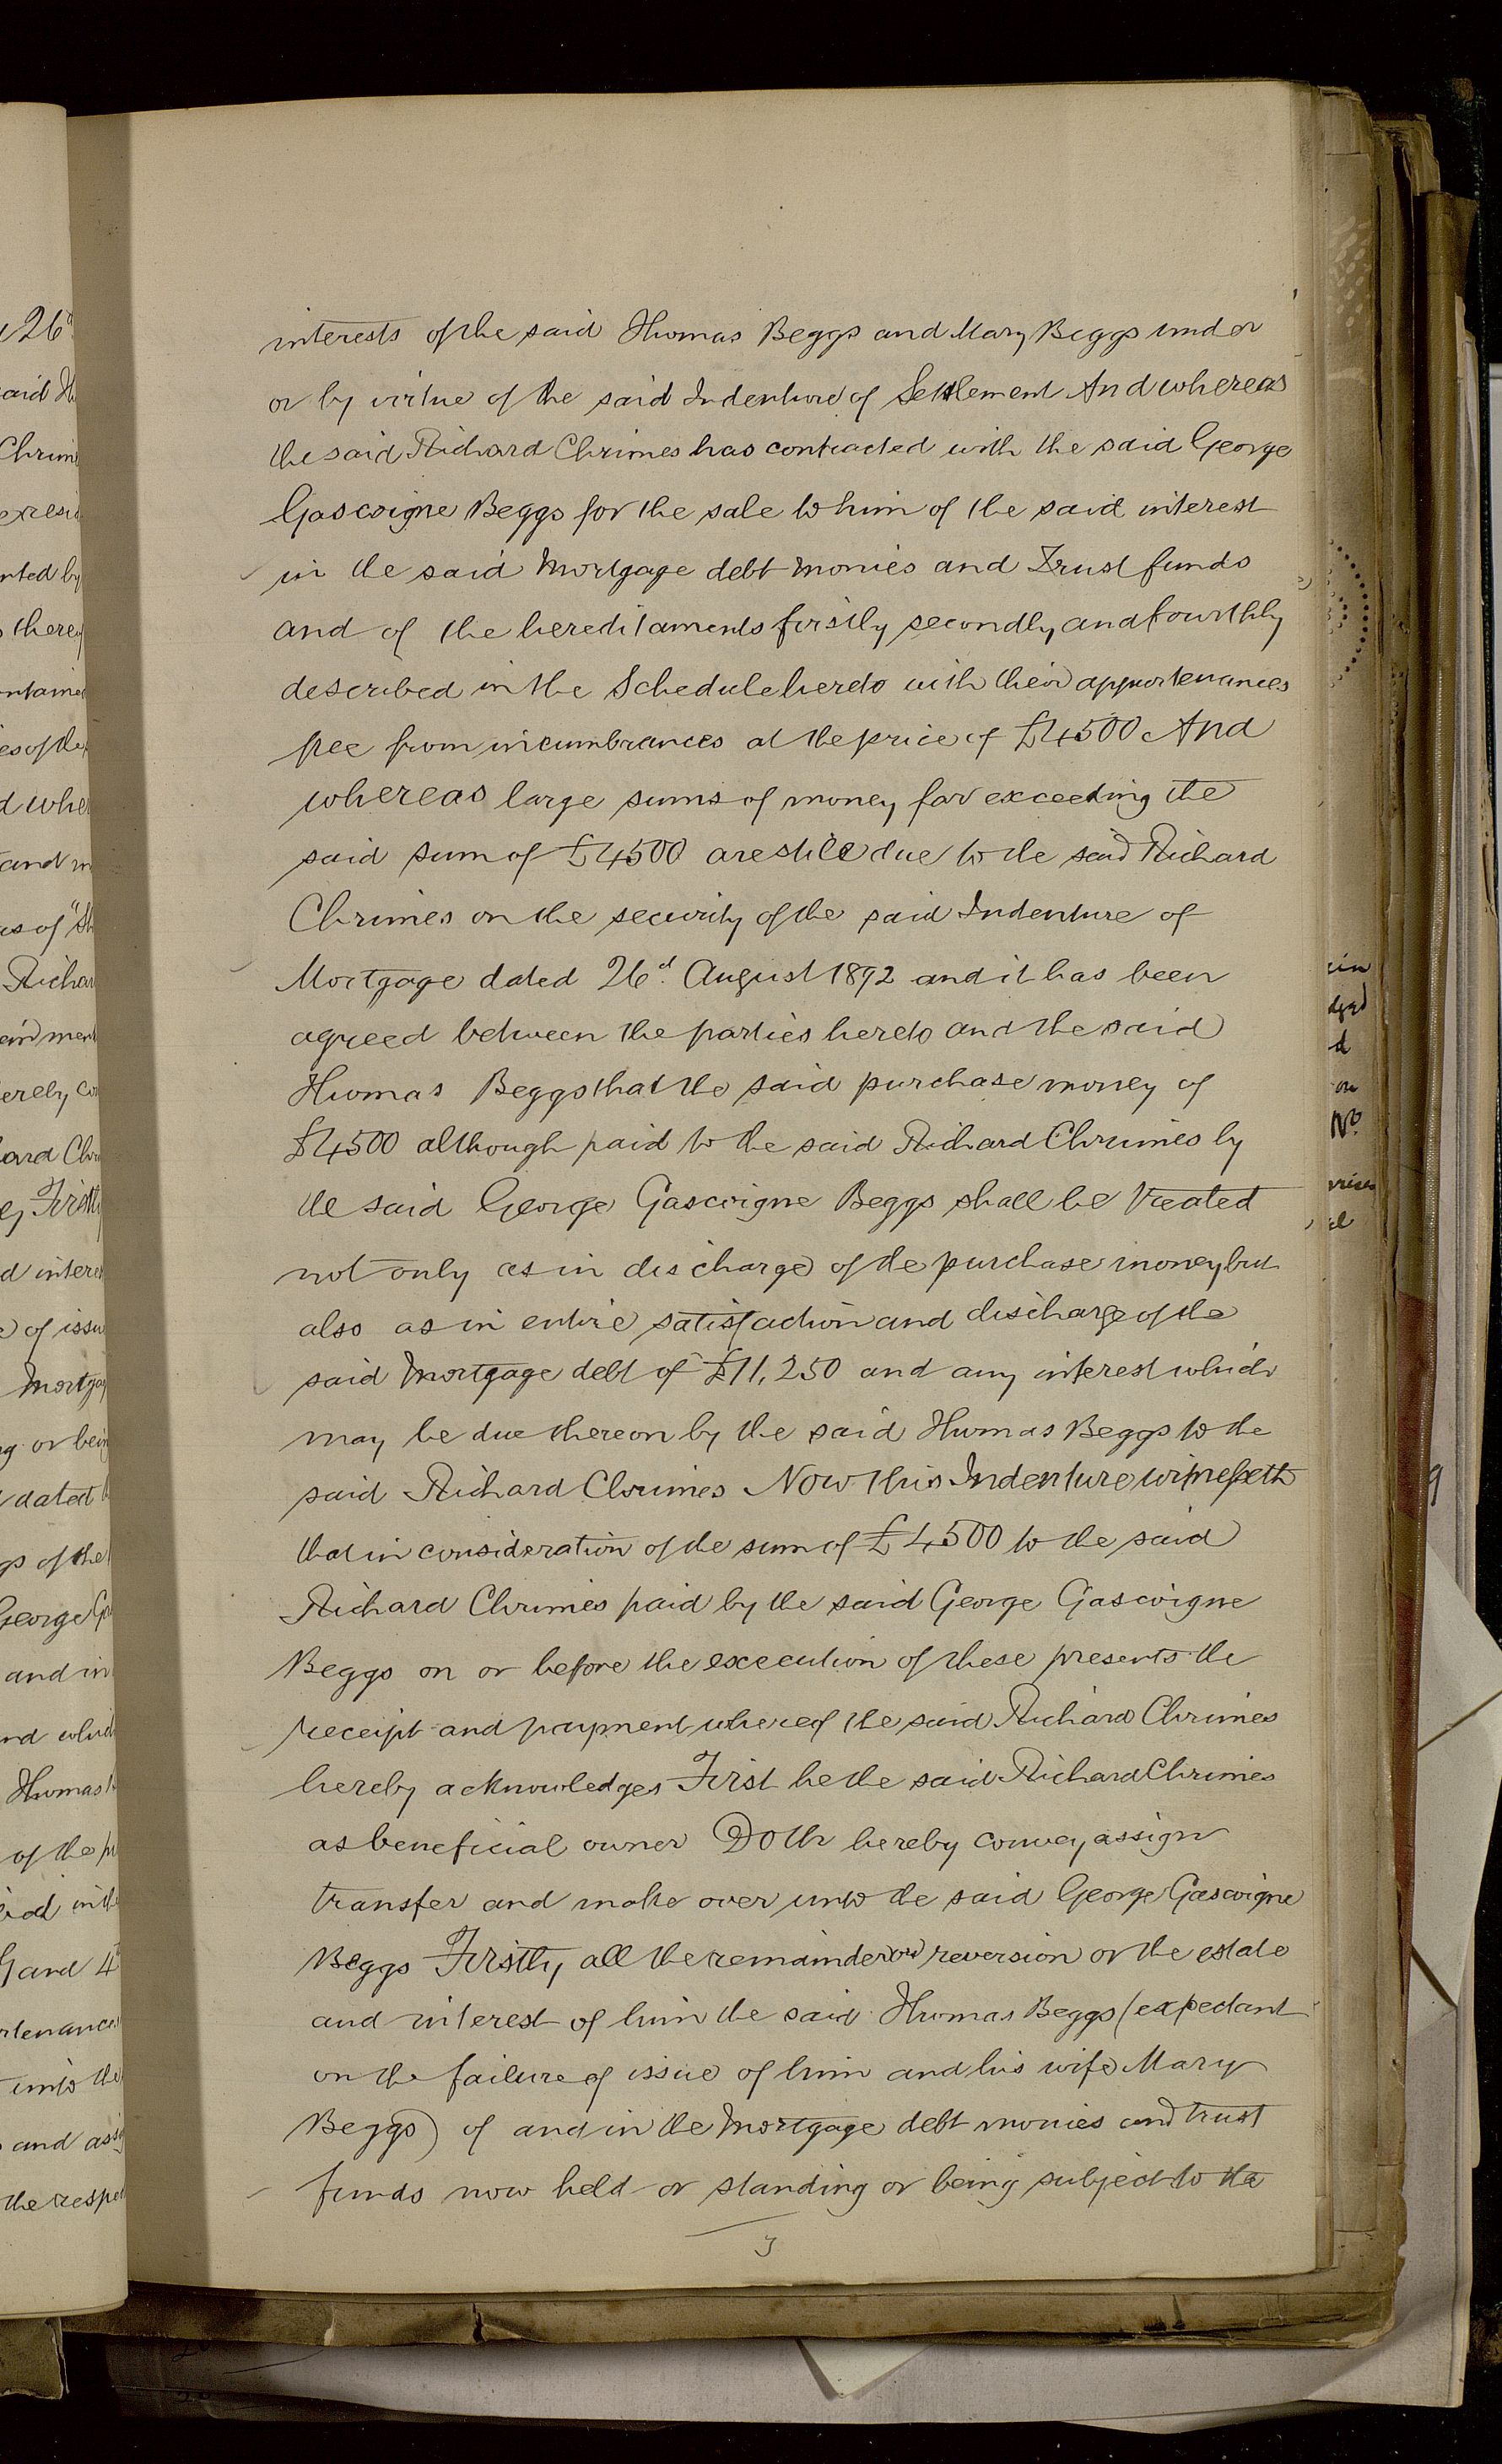 interests of the said Thomas Beggs and Mary Beggs under
or by virtue of the said Indenture of Settlement And whereas
the said Richard Chrimes has contracted with the said George
Gascoigne Beggs for the sale to him of the said interest
in the said Mortgage debt monies and Trust funds
and of the hereditaments firstly secondly and fourthly
described in the Schedule hereto with their appurtenances
free from incumbrances at the price of £4500 And
whereas large sums of money far exceeding the
said sum of £4500 are still due to the said Richard
Chrimes on the security of the said Indenture of
Mortgage dated 26d. August 1892 and it has been
agreed between the parties hereto and the said
Thomas Beggs that the said purchase money of
£4500 although paid to the said Richard Chrimes by
the said George Gascoigne Beggs shall be treated
not only as in discharge of the purchase money but
also as in entire satisfaction and discharge of the
said Mortgage debt of £11,250 and any interest which
may be due thereon by the said Thomas Beggs to the
said Richard Chrimes Now this Indenture witnesseth
that in consideration of the sum of £4500 to the said
Richard Chrimes paid by the said George Gascoigne
Beggs on or before the execution of these presents the
receipt and payment whereof the said Richard Chrimes
hereby acknowledges First he the said Richard Chrimes
as beneficial owner Doth hereby convey assign
transfer and make over unto the said George Gascoigne
Beggs Firstly all the remainder or reversion or the estate
and interest of him the said Thomas Beggs (expectant
on the failure of issue of him and his wife Mary
Beggs) of and in the Mortgage debt monies and trust
funds now held or standing or being subject to the
3